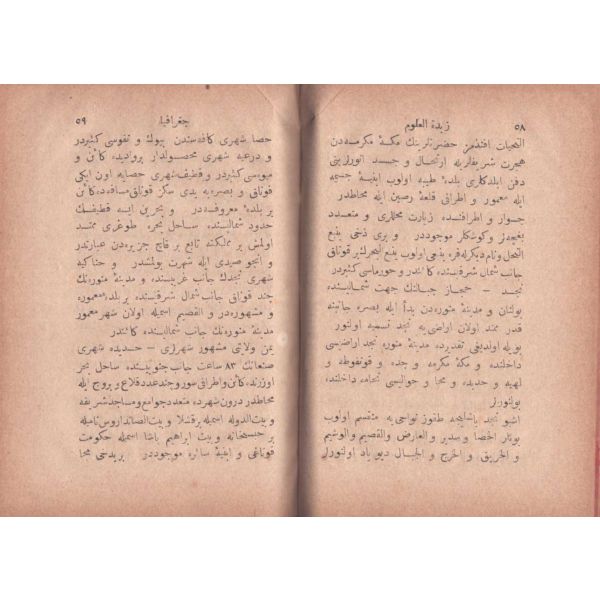 ٥٨ زبدة العلوم
التحیات افندمز حضرتلرینك مكهٔ مكرمه‌دن
هجرت شریفلریله ارتحال و جسد انورلرینی
دفن ایلدكلری بلدهٔ طیبه اولوب ابنیهٔ جسیمه
ایله معمور و اطرافی قلعهٔ رصین ایله محاطدر
جوار و اطرافنده زیارت محللری و متعدد
بغچه‌لر و كوشكلر موجوددر و بری دخی ینبع
البحر نام دیكرله فره ینبعی اولوب ینبع البحر بر قوناق
جانب شمال شرقیسنده كائندر و خورماسی كثیردر
نجد – حجاز جبالنك جهت شمالیسنده
بولنان و مدینهٔ منوره‌دن بدأ ایله بصره جانبنه
قدر ممتد اولان اراضی‌یه نجد تسمیه اولنور
بویله اولدیغی تقدیرده مدینهٔ منوره نجد اراضیسی
داخلنده و مكهٔ مكرمه و جده و قونفوطه و
لهیه و حدیده و مخا و حوالیسی تهامه داخلنده
بولنورلر
اشبو نجد باشلیجه طقوز نواحی‌یه منقسم اولوب
بونلر الحصا و سدیر و العارض والقصیم والوشیم
و الحریق و الخرج و الجبال دیو یاد اولنورلر
جغرافیا ٥٩
حصا شهری كافه‌سندن بیوك و نفوسی كثیردر
و درعیه شهری محصولدار بر وادیده كائن و
میوه‌سی كثیردر و قطیف شهری حصایه اون ایكی
قوناق و بصره‌یه یدی سكز قوناق مسافه‌ده كائن
بر بلدهٔ معروفه‌در و بحرین ایسه قطیفك
حدود شمالیسنده ساحل بحره طوغری ممتد
اولمش بر مملكته تابع بر قاچ جزیره‌دن عبارتدر
و انجو صیدی ایله شهرت بولمشدر و حناكیه
شهری نجدك جانب غربیسنده و مدینهٔ منوره‌نك
چند قوناق جانب شمال شرقیسنده بر بلدهٔ معموره
و مشهوره‌در و القصیم اسمیله اولان شهر معمور
مدینهٔ منوره‌نك جانب شمالیسنده كائندر
یمن ولایتی مشهور شهرلری – حدیده شهری
صنعانك ٨٣ ساعت جانب جنوبیسنده ساحل بحر
اوزرنده كائن و اطرافی سور و چند عدد قلاع و بروج ایله
محاطدر درون شهرده متعدد جوامع و مساجد شریفه
و بیت الدوله اسمیله بر قشلا و بیت الصاندا روس نامیله
بر خسته‌خانه و بیت ابراهیم پاشا اسمیله حكومت
قوناغی و ابنیهٔ سائره موجوددر بریدخی مخا